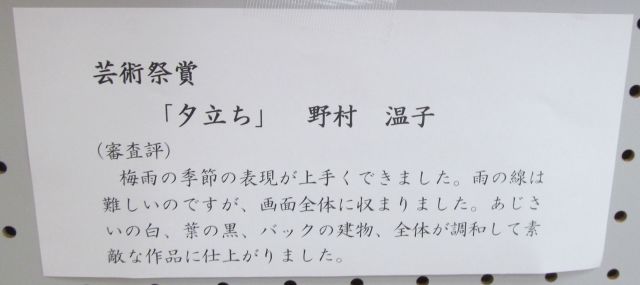 芸術祭賞
「夕立ち」 野村 温子
(審査評)
梅雨の季節の表現が上手くできました。雨の線は
難しいのですが、画面全体に収まりました。あじさ
いの白、葉の黒、バックの建物、全体が調和して素
敵な作品に仕上がりました。